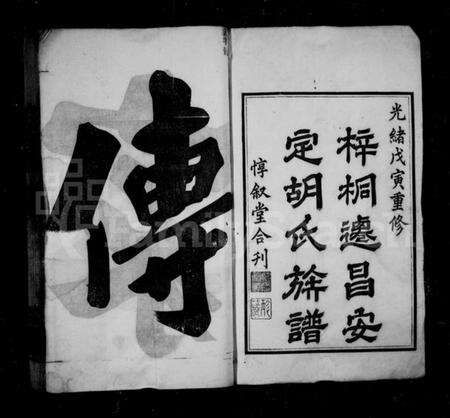 光緒戊寅重修
梓桐邊昌安
定胡氏旅譜
惇叙堂合刊
傳